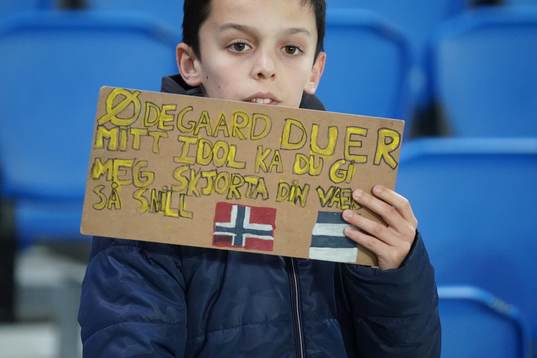 ØDEGAARD DU ER
MITT IDOL KA DU GI
MEG SKJORTA DIN VÆR
SÅ SNILL